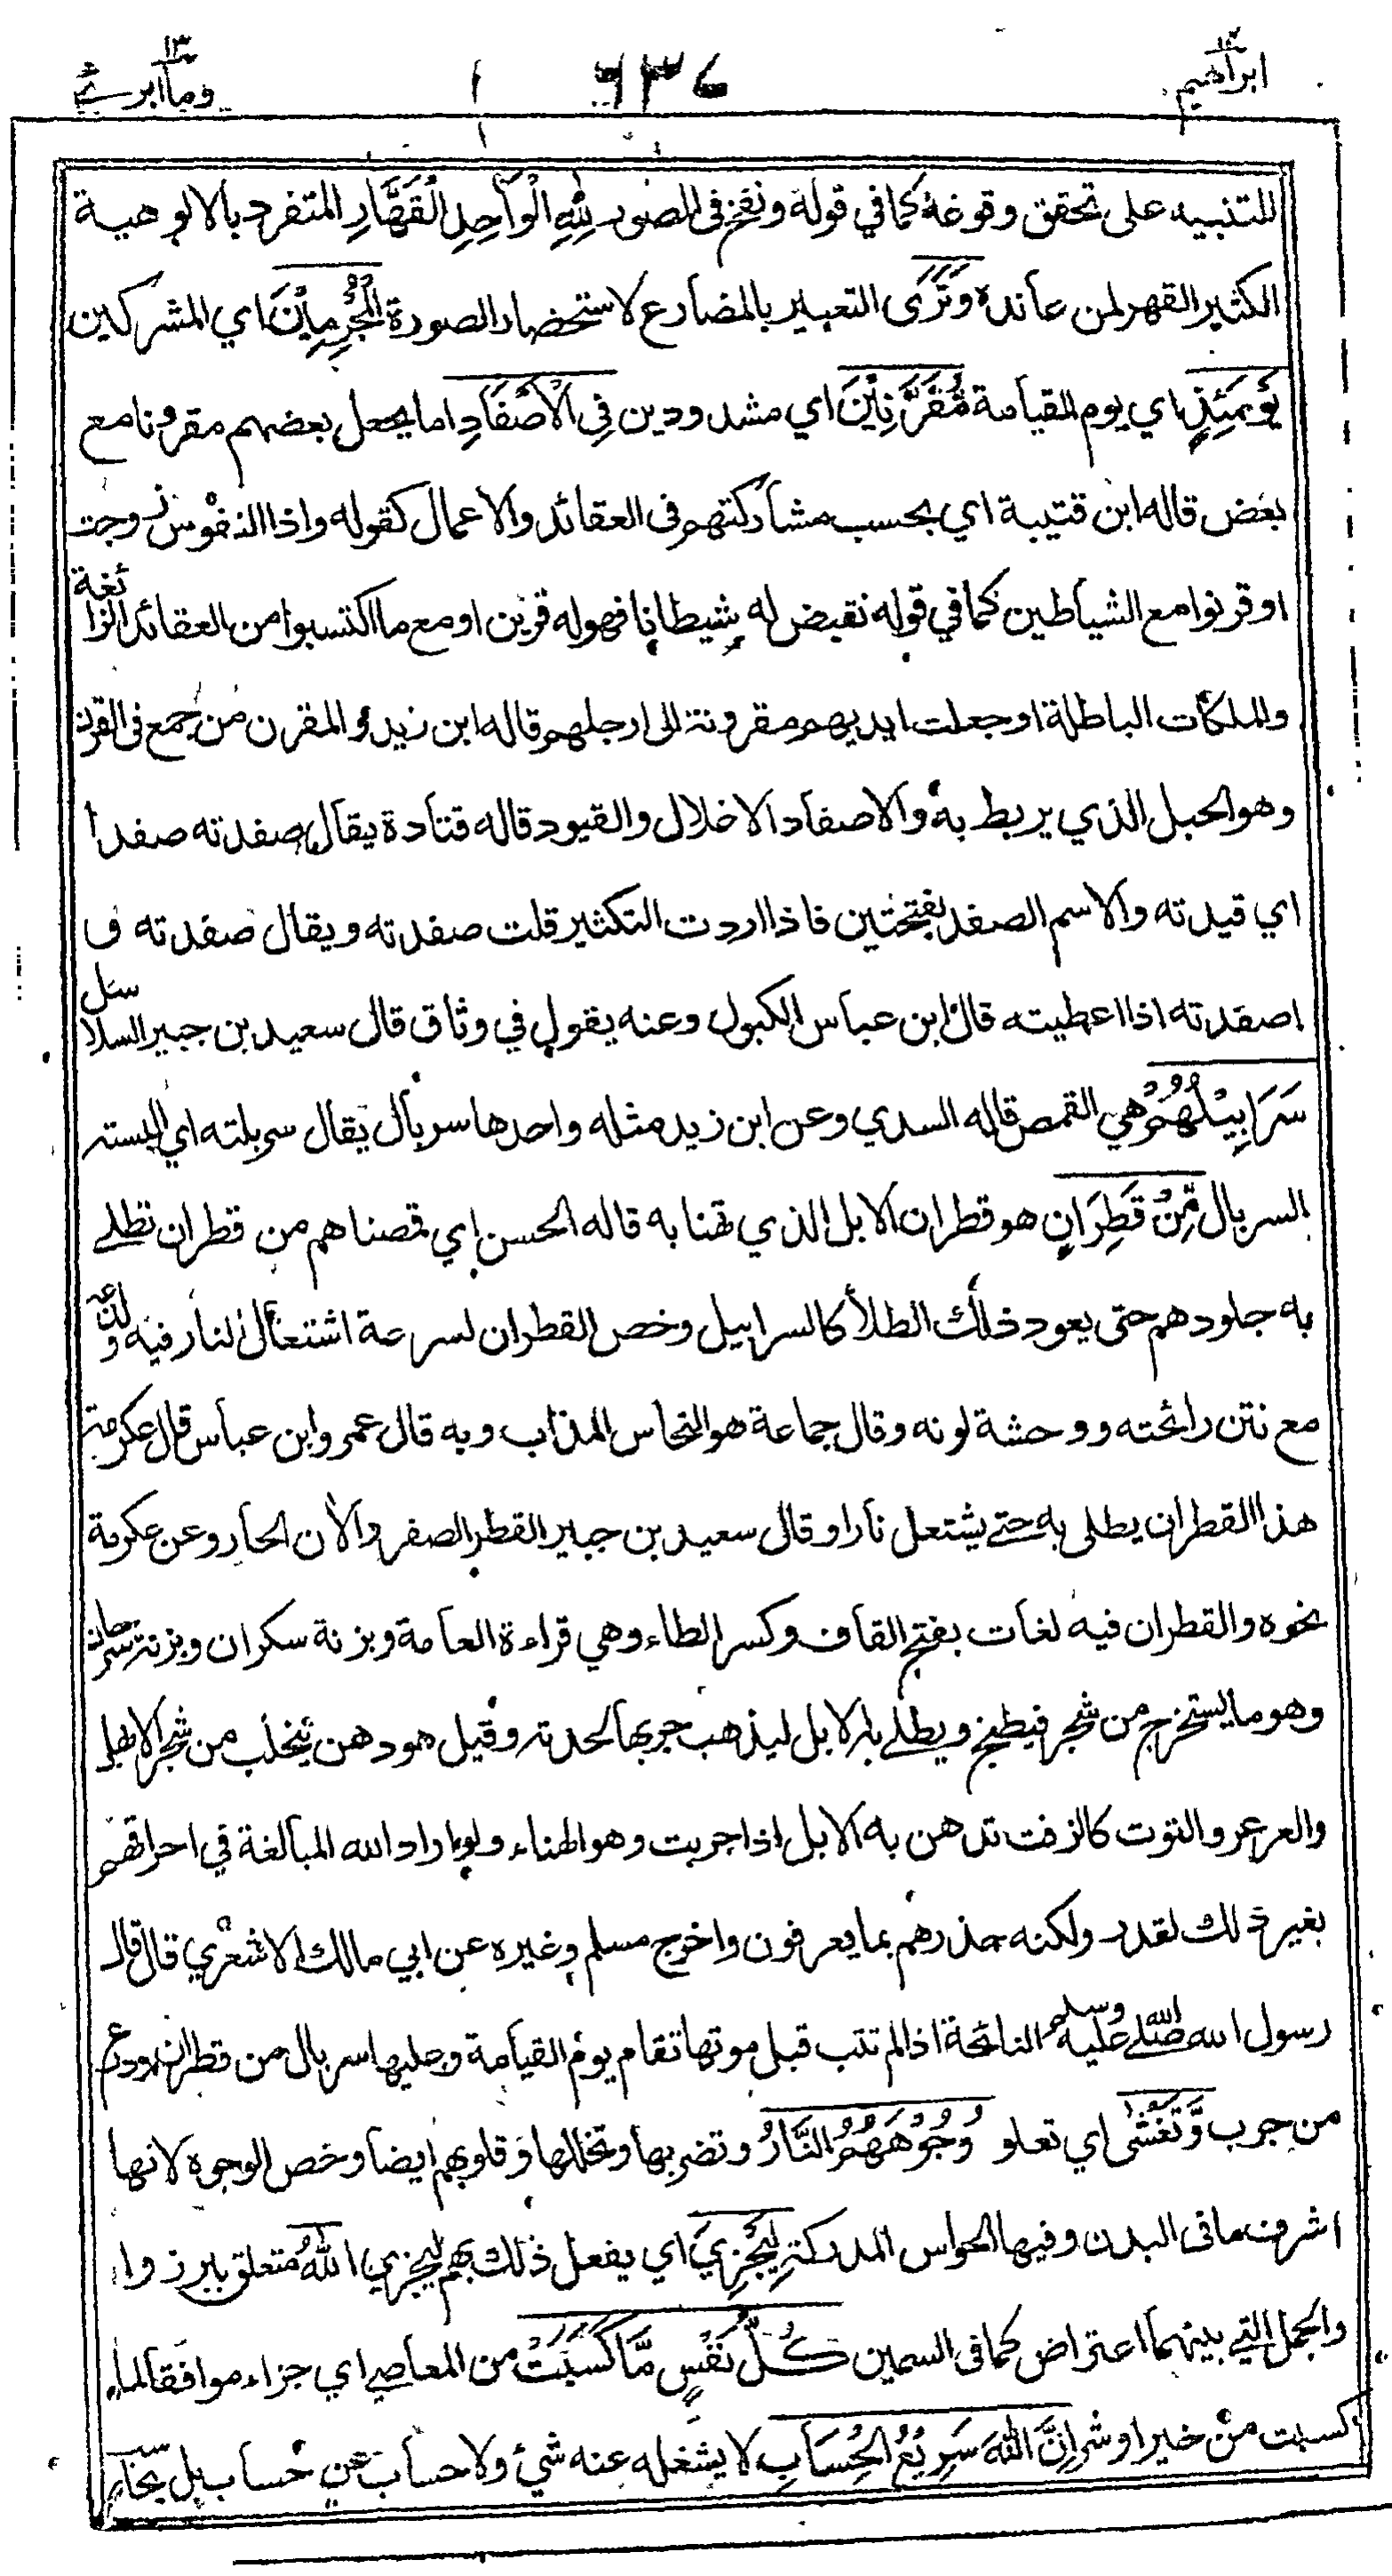 ابراهيم ١٤
٦٣٤
وما ابرئ ١٣
للتنبيه على تحقق وقوعه كما في قوله ونفخ فى الصور لِلّٰهِ الْوَاحِدِ الْقَهَّارِ المتفرد بالالوهية
الكثير القهر لمن عانده وَتَرَى التعبير بالمضارع لاستحضار الصورة الْمُجْرِمِيْنَ اي المشركين
يَوْمَئِذٍ اي يوم القيامة مُّقَرَّنِيْنَ اي مشدودين فِي الْاَصْفَادِ اما بجعل بعضهم مقرونا مع
بعض قاله ابن قتيبة اي بحسب مشاركتهم فى العقائد والاعمال كقوله واذا النفوس زوجت
او قرنوا مع الشياطين كما في قوله نقيض له شيطانا فهو له قرين او مع ما اكتسبوا من العقائد الزائغة
والملكات الباطلة او جعلت ايديهم مقرونة الى ارجلهم قاله ابن زيد و المقرن من جمع فى القرن
وهو الحبل الذي يربط به والاصفاد الاغلال والقيود قاله قتادة يقال صفدته صفدا
اي قيدته والاسم الصفد بفتحتين فاذا اردت التكثير قلت صفدته ويقال صفدته و
اصفدته اذا اعطيته قال ابن عباس الكبول وعنه يقول في وثاق قال سعيد بن جبير السلاسل
سَرَابِيْلُهُمْ هي القمص قاله السدي وعن ابن زيد مثله واحدها سربال يقال سربلته اي البسته
السربال مِّنْ قَطِرَانٍ هو قطران الابل الذي تهنا به قاله الحسن اي قمصناهم من قطران تطلے
به جلودهم حتى يعود ذلك الطلا كالسرابيل وخص القطران لسرعة اشتعال النار فيه ولذعه
مع نتن رائحته ووحشة لونه وقال جماعة هو النحاس المذاب وبه قال عمر وابن عباس قال عكرمة
هذا القطران يطلى به حتے يشتعل نارا وقال سعيد بن جبير القطر الصفر والأن الحار وعن عكرمة
نحوه والقطران فيه لغات بفتح القاف وكسر الطاء وهي قراءة العامة وبزنة سكران وبزنة سرحان
وهو ما يستخرج من شجر فيطبخ ويطلے به الابل ليذهب جربها لحدته وقيل هو دهن يتحلب من شجر الابهل
والعرعر والتوت كالزفت تدهن به الابل اذا جربت وهو الهناء ولو اراد الله المبالغة في احراقهم
بغير ذلك لقدر ولكنه حذرهم بما يعرفون واخرج مسلم وغيره عن ابي مالك الاشعري قال قال
رسول الله صلے الله عليه وسلم النائحة اذا لم تتب قبل موتها تقام يوم القيامة وعليها سربال من قطران ودرع
من جرب وَّتَغْشٰى اي تعلو وُجُوْهَهُمُ النَّارُ وتضربها وتخللها وقلوبهم ايضا وخص الوجوه لانها
اشرف ما فى البدن وفيها الحواس المدركة لِيَجْزِيَ اي يفعل ذلك بهم ليجزي اللّٰهُ متعلق ببرزوا
والجمل التي بينهما اعتراض كما فى السمين كُلَّ نَفْسٍ مَّا كَسَبَتْ من المعاصے اي جزاء موافقا لما
كسبت من خير او شر اِنَّ اللّٰهَ سَرِيْعُ الْحِسَابِ لا يشغله عنه شئ ولا حساب عن حساب بل